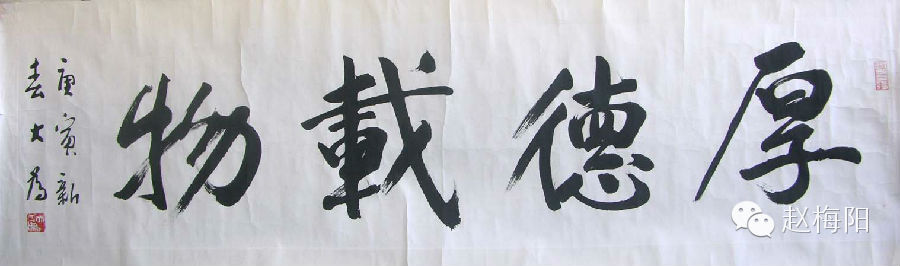 厚德載物
庚寅新
春大為
赵梅阳